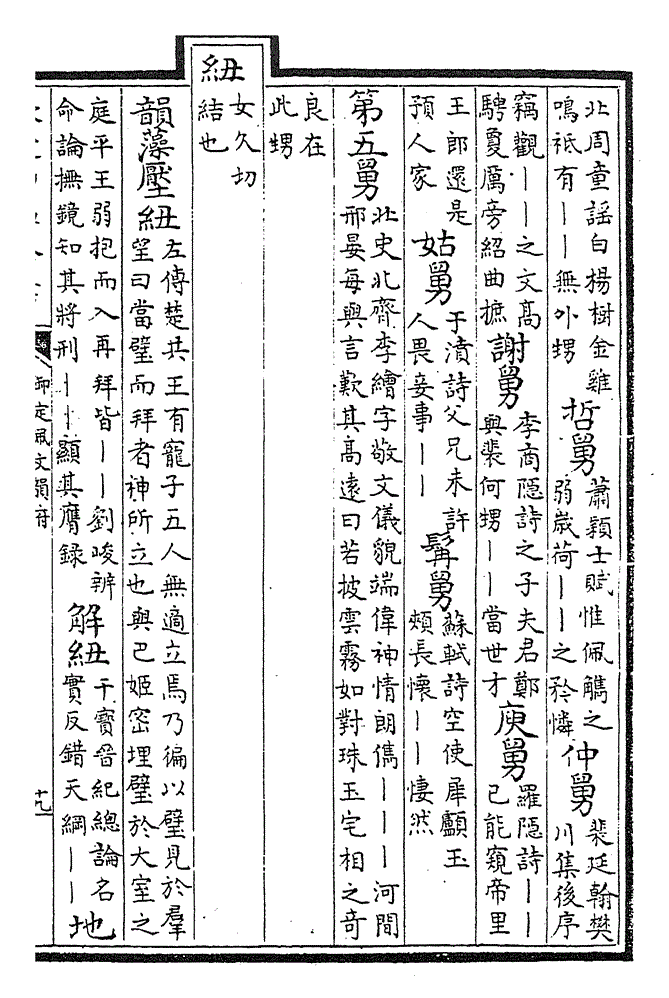 北周童謡白楊樹金雞鳴祇有丨丨無外甥 哲舅 蕭穎士賦惟佩觿之弱歲荷丨丨之矜憐 仲舅 裴延翰樊川集後序
竊觀丨丨之文高騁夐厲旁紹曲摭 謝舅 李商隠詩之子夫君鄭與裴何甥丨丨當世才 庾舅 羅隠詩丨丨已能窺帝里
王郎還是預人家 姑舅 于濆詩父兄未許人畏妾事丨丨 髯舅 蘇軾詩空使犀顱玉頰長懷丨丨悽然
第五舅 北史北齊李繪字敬文儀貌端偉神情朗儁丨丨丨河間邢晏每與言歎其高遠曰若披雲霧如對珠玉宅相之奇
良在此甥
紐 女久切結也
韻藻壓紐 左傳楚共王有寵子五人無適立焉乃徧以璧見於羣望曰當璧而拜者神所立也與巴姬密埋璧於大室之
庭平王弱抱而入再拜皆丨丨劉峻辨命論撫鏡知其將刑丨丨顯其膺録 解紐 干寶晉紀總論名實反錯天綱丨丨 地
御定佩文韻府 十九